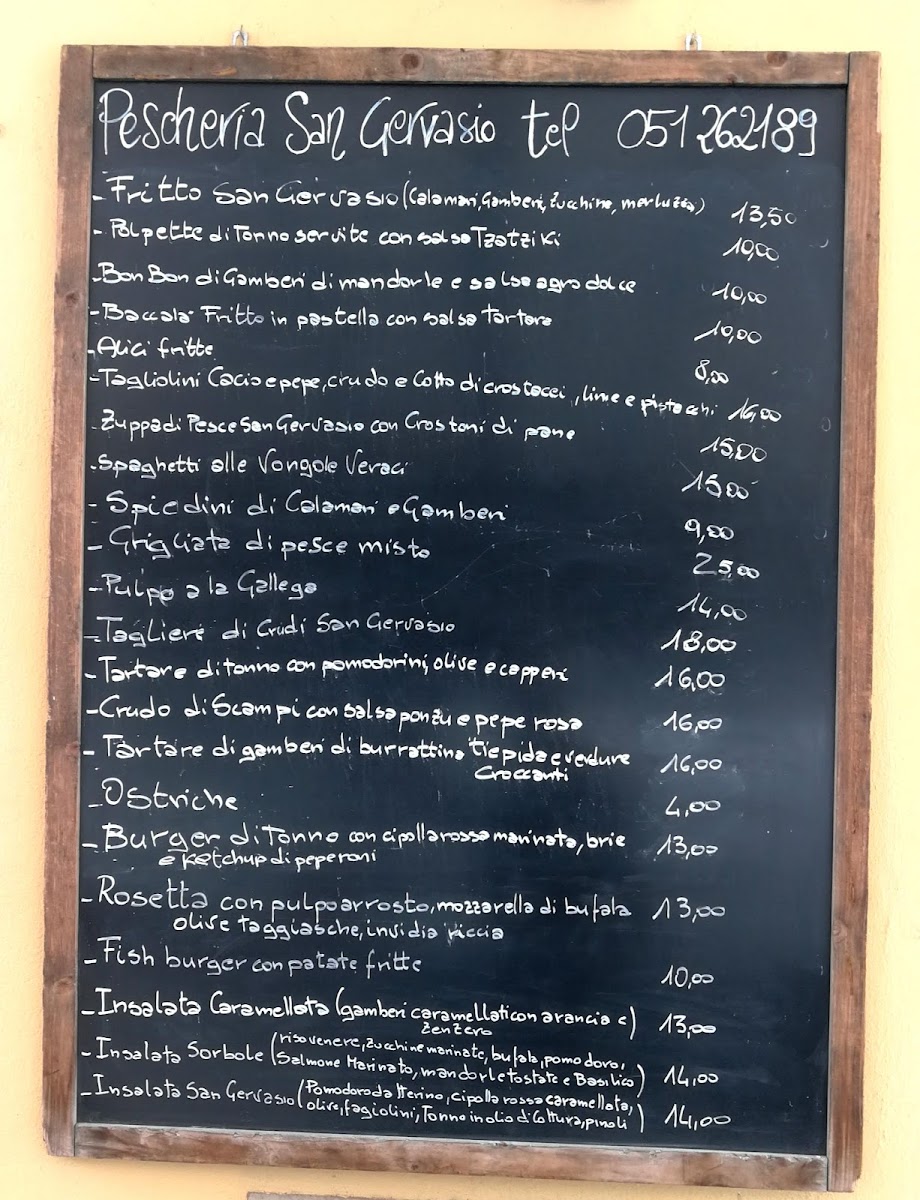 Pescheria San Gervasio tel 051 262189
- Fritto San Gervasio (Calamari, Gamberi, Zucchine, merluzzo) 13,50
- Polpette di Tonno servite con salsa Tzatziki 10,00
- Bon Bon di Gamberi di mandorle e salsa agro dolce 10,00
- Baccalà Fritto in pastella con salsa tartara 10,00
- Alici fritte 8,00
- Tagliolini Cacio e pepe, crudo e Cotto di crostacei, lime e pistacchi 16,00
- Zuppa di Pesce San Gervasio con Crostoni di pane 15,00
- Spaghetti alle Vongole Veraci 15,00
- Spiedini di Calamari e Gamberi 9,00
- Grigliata di pesce misto 25,00
- Pulpo a la Gallega 14,00
- Tagliere di Crudi San Gervasio 18,00
- Tartare di tonno con pomodorini, olive e capperi 16,00
- Crudo di Scampi con salsa ponzu e pepe rosa 16,00
- Tartare di gamberi di burrattina tiepida e verdure 16,00
croccanti
- Ostriche 4,00
- Burger di Tonno con cipolla rossa marinata, brie 13,00
e ketchup di peperoni
- Rosetta con pulpo arrosto, mozzarella di bufala 13,00
olive taggiasche, invidia riccia
- Fish burger con patate fritte 10,00
- Insalata Caramellata (gamberi caramellati con arancia e) 13,00
zenzero
- Insalata Sorbole (riso venere, zucchine marinate, bufala, pomodoro,
Salmone Marinato, mandorle tostate e Basilico) 14,00
- Insalata San Gervasio (Pomodoro da Merino, cipolla rossa caramellata,
olive, fagiolini, Tonno in olio di Cottura, pinoli) 14,00